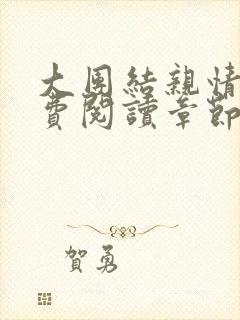 大團結親情
費閱讀章節
賀勇